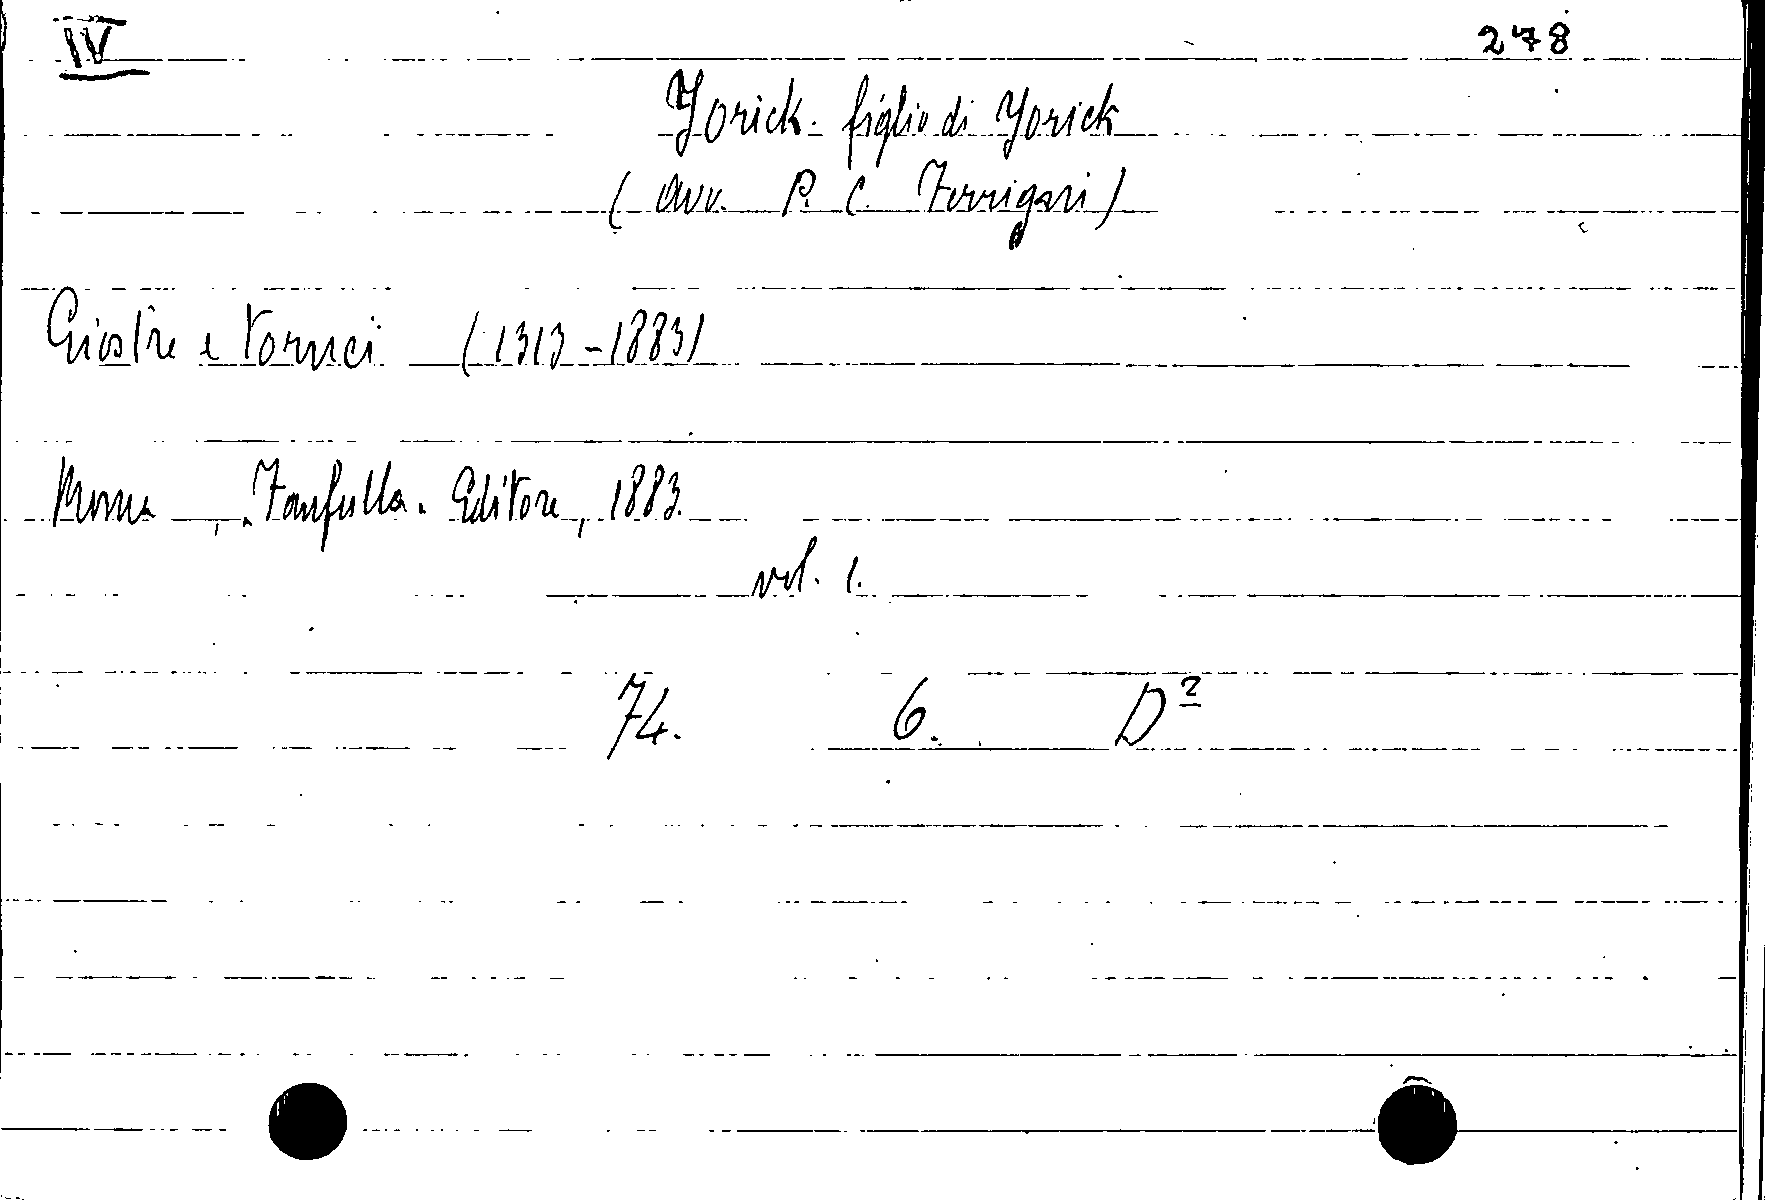 IV 278
Yorick. figlio di Yorick
(avv. P. C. Ferrigni)
Giostre e tornei (1313-1883)
Roma, "Fanfulla" Editore, 1883.
vol. 1.
74. 6. D²